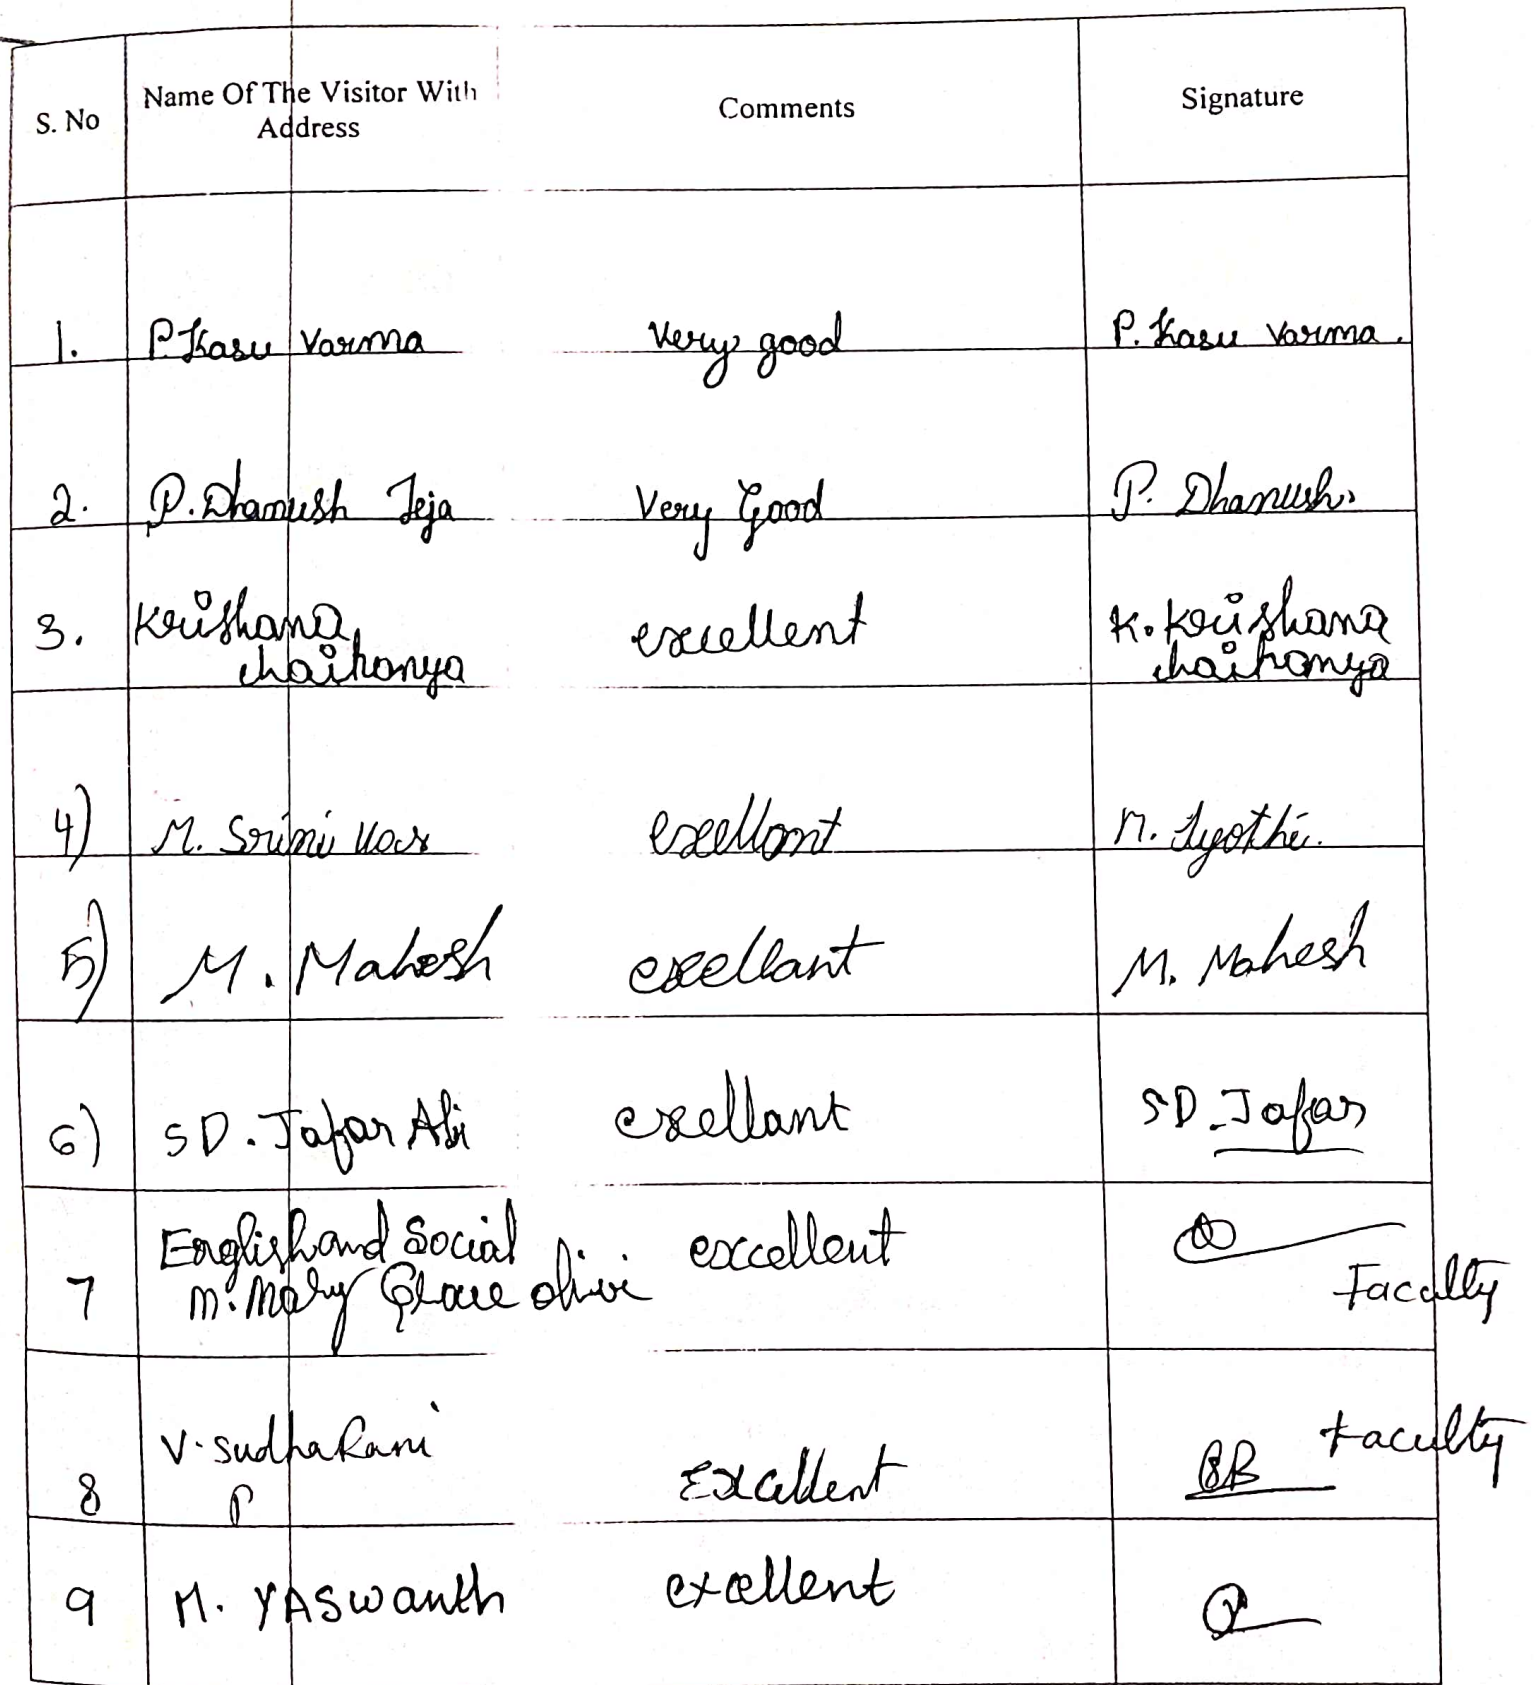 S. No Name Of The Visitor With Address Comments Signature
1. P. Kasu Varma Very good P. Kasu Varma.
2. P. Dhanush Teja Very Good P. Dhanush.
3. Krishana chaithanya excellent K. Krishana chaithanya
4) M. Srinivas exellant M. Jyothi.
5) M. Mahesh exellant M. Mahesh
6) SD. Jafar Ali exellant SD. Jafar
7 English and Social excellent
M. Mary Grace olivi Faculty
8 V. Sudha Rani P Excellent Faculty
9 M. YASwanth excellent